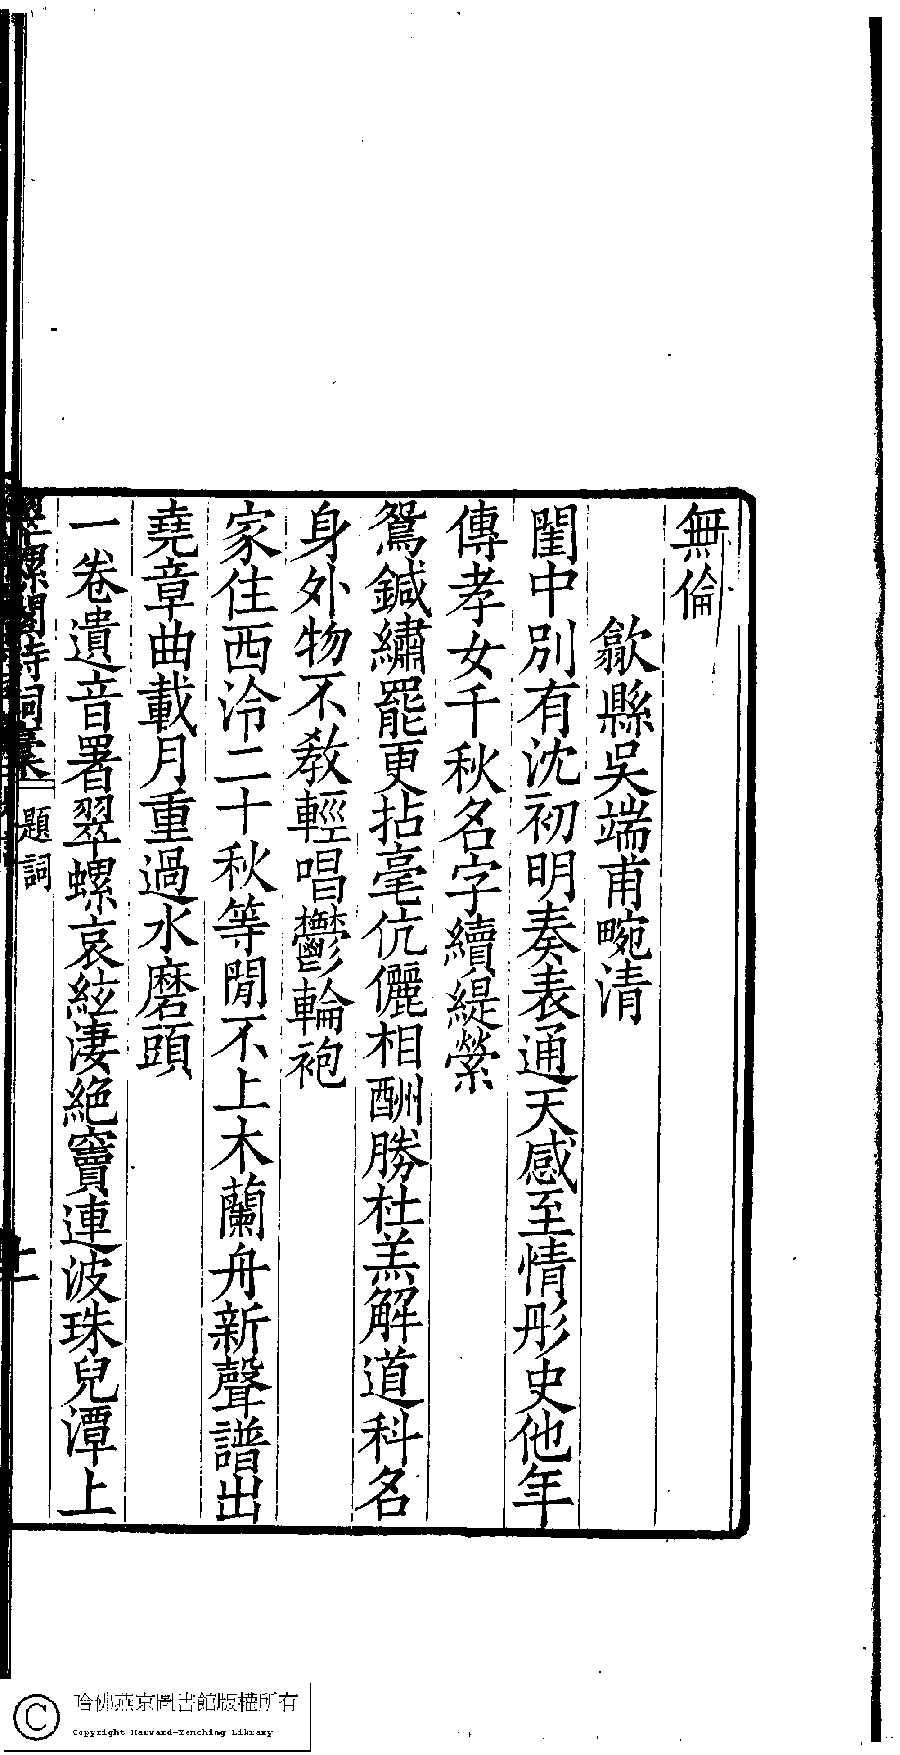 無倫
歙縣吳端甫畹清
閨中別有沈初明奏表通天感至情彤史他年
傳孝女千秋名字續緹縈
鴛鍼繡罷更拈毫伉儷相酬勝杜羔解道科名
身外物不教輕唱鬱輪袍
家住西泠二十秋等閒不上木蘭舟新聲譜出
堯章曲載月重過水磨頭
一卷遺音署翠螺哀絃淒絕竇連波珠兒潭上
翠螺閣詩詞稾
題詞
哈佛燕京圖書館版權所有
Copyright Harvard-Yenching Library